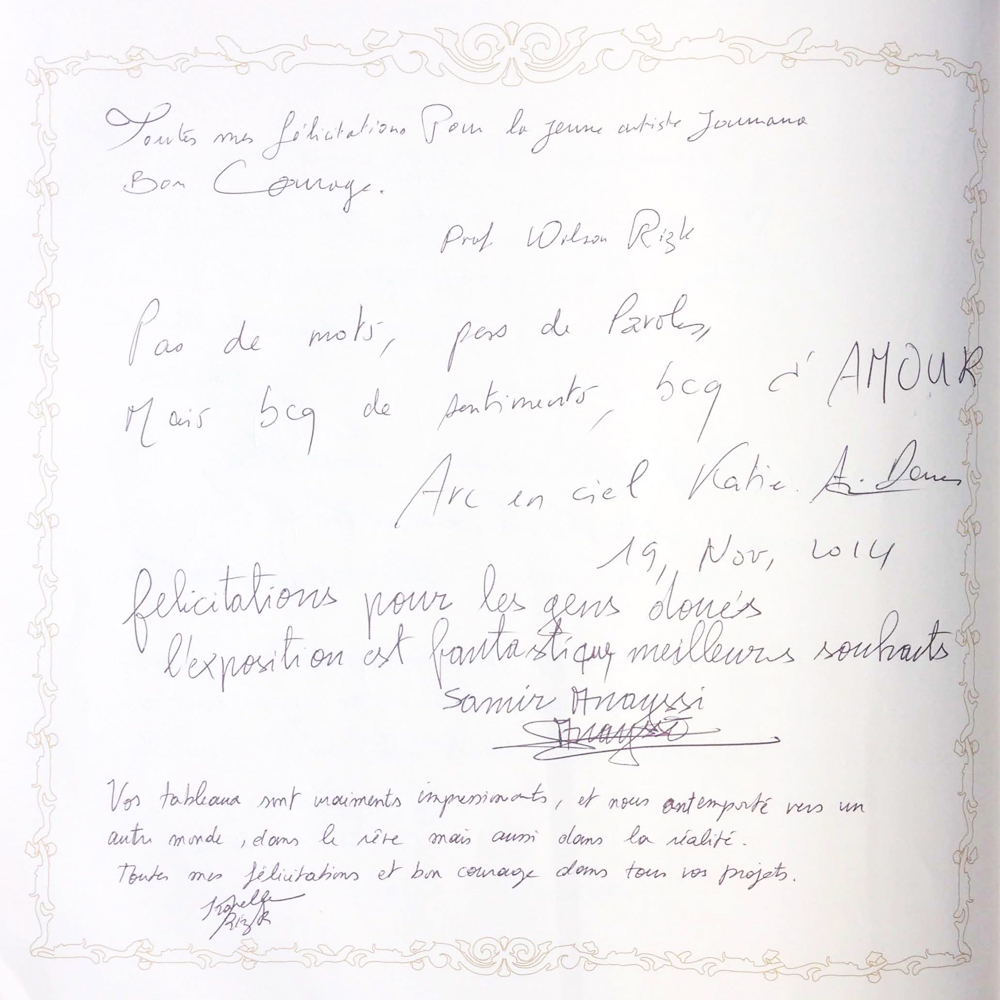 Toutes mes félicitations Pour la jeune artiste Joumana
Bon Courage.
Prof. Wilson Rizk
Pas de mots, pas de Paroles,
Mais bcq de sentiments, bcq d'AMOUR
Arc en ciel Katie.
19, Nov, 2014
félicitations pour les gens doués
l'exposition est fantastique meilleurs souhaits
Samir Anayssi
Vos tableaux sont vraiments impressionants, et nous ont emporté vers un
autre monde, dans le rêve mais aussi dans la réalité.
Toutes mes félicitations et bon courage dans tous vos projets.
Rizk